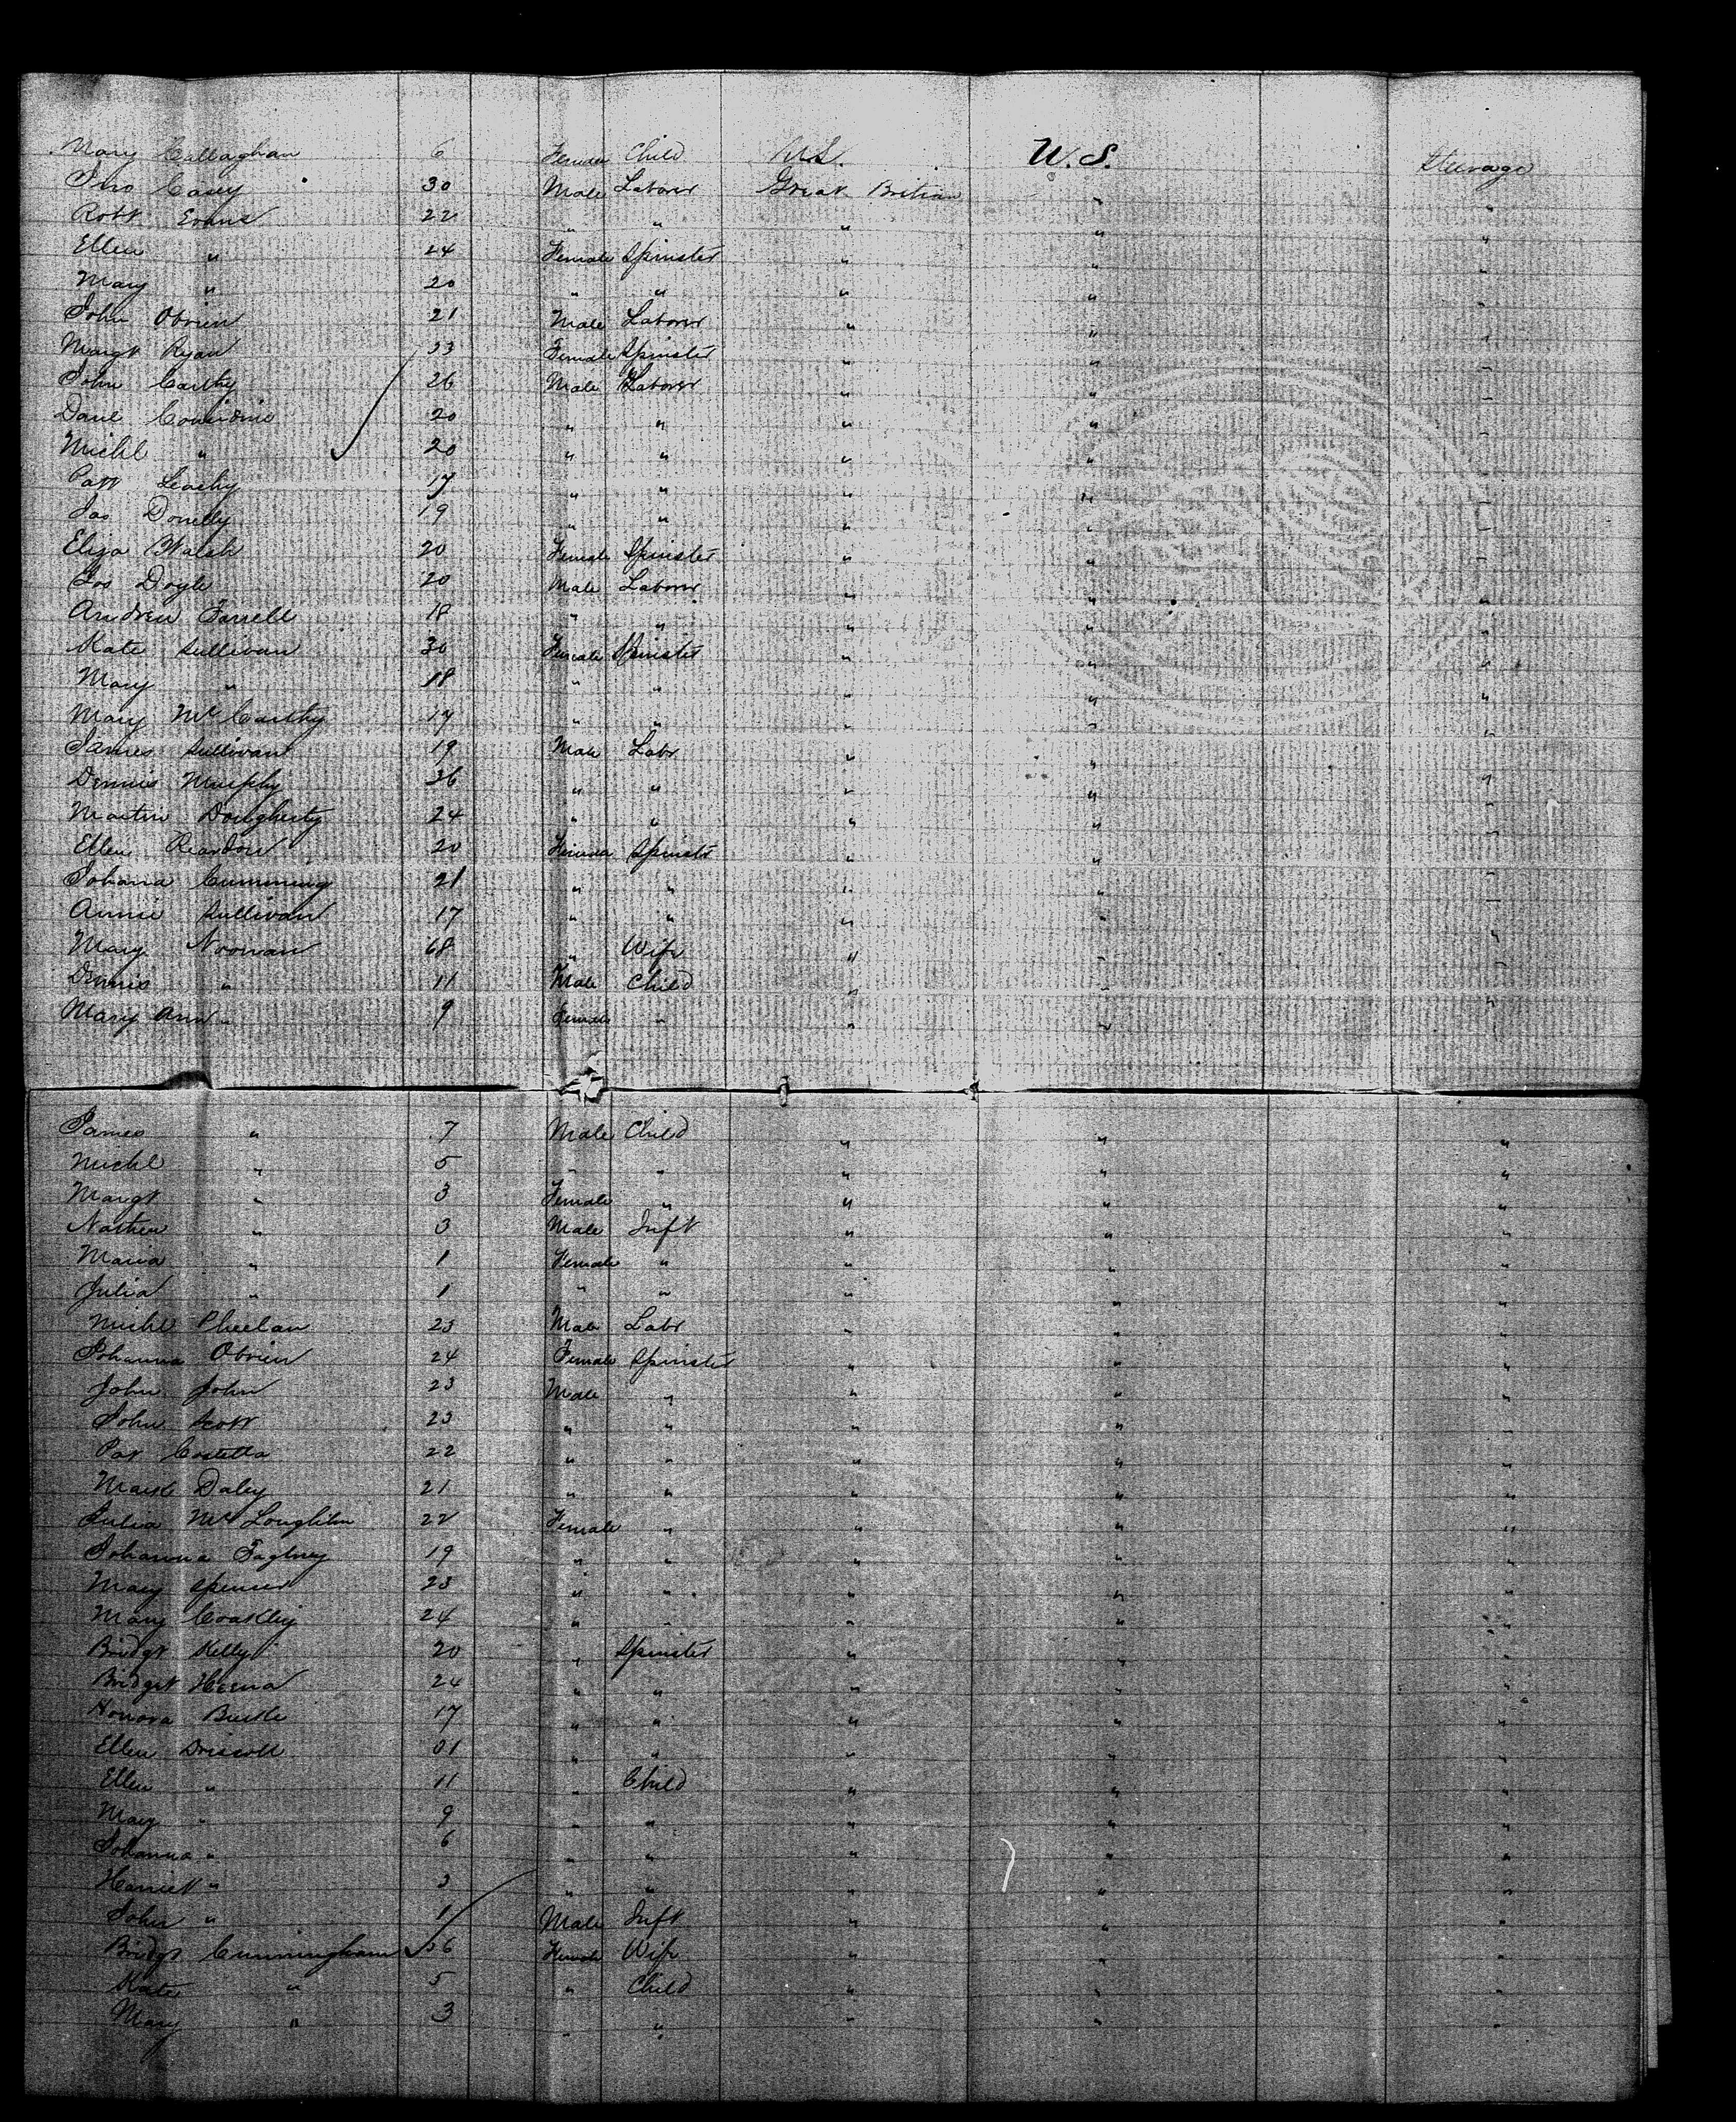 Mary Callaghan 6 Female Child U.S. U.S. Steerage
Jno Casey 30 Male Laborer Great Britian " "
Robt Evans 22 " " " " "
Ellen " 24 Female Spinster " " "
Mary " 20 " " " " "
John Obrien 21 Male Laborer " " "
Margt Ryan 23 Female Spinster " " "
John Carthy 26 Male Laborer " " "
Danl Considine 20 " " " " "
Michl " 20 " " " " "
Patt Leahy 17 " " " " "
Jas Donelly 19 " " " " "
Eliza Walsh 20 Female Spinster " " "
Jos Doyle 20 Male Laborer " " "
Andrew Farrell 18 " " " " "
Kate Sullivan 30 Female Spinster " " "
Mary " 18 " " " " "
Mary McCarthy 17 " " " " "
James Sullivan 19 Male Labr " " "
Dennis Murphy 26 " " " " "
Martin Dougherty 24 " " " " "
Ellen Reardon 20 Female Spinstr " " "
Johana Cumming 21 " " " " "
Annie Sullivan 17 " " " " "
Mary Noonan 68 " Wife " " "
Dennis " 11 Male Child " " "
Mary Ann " 9 Female " " " "
James " 7 Male Child " " "
Michl " 5 " " " " "
Margt " 3 Female " " " "
Nathew " 3 Male Inft " " "
Maria " 1 Female " " " "
Julia " 1 " " " " "
Michl Pheelan 23 Male Labr " " "
Johanna Obrien 24 Female Spinster " " "
John John 23 Male " " " "
John Scott 23 " " " " "
Pat Costetta 22 " " " " "
Mark Daley 21 " " " " "
Julia McLoughlin 22 Female " " " "
Johanna 19 " " " " "
Mary Spencer 23 " " " " "
Mary Coakley 24 " " " " "
Bridgt Kelly 20 " Spinster " " "
Bridget 24 " " " " "
Honora Burke 17 " " " " "
Ellen Driscoll 31 " " " " "
Ellen " 11 " Child " " "
Mary " 9 " " " " "
Johanna " 6 " " " " "
Harriet " 3 " " " " "
John " 1 Male Inft " " "
Bridgt Cunningham 36 Female Wife " " "
Kate " 5 " Child " " "
Mary " 3 " " " " "